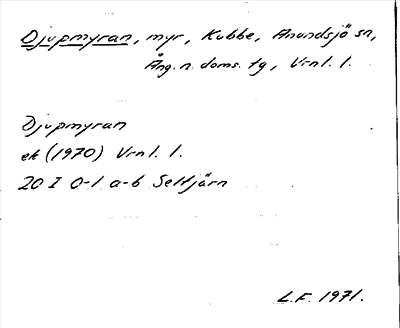 Djupmyran, myr, Kubbe, Anundsjö sn,
Ång. n. doms. tg, Vrnl. l.
Djupmyran
ek (1970) Vrnl. l.
20 I 0-1 a-b Seltjärn
L.F. 1971.